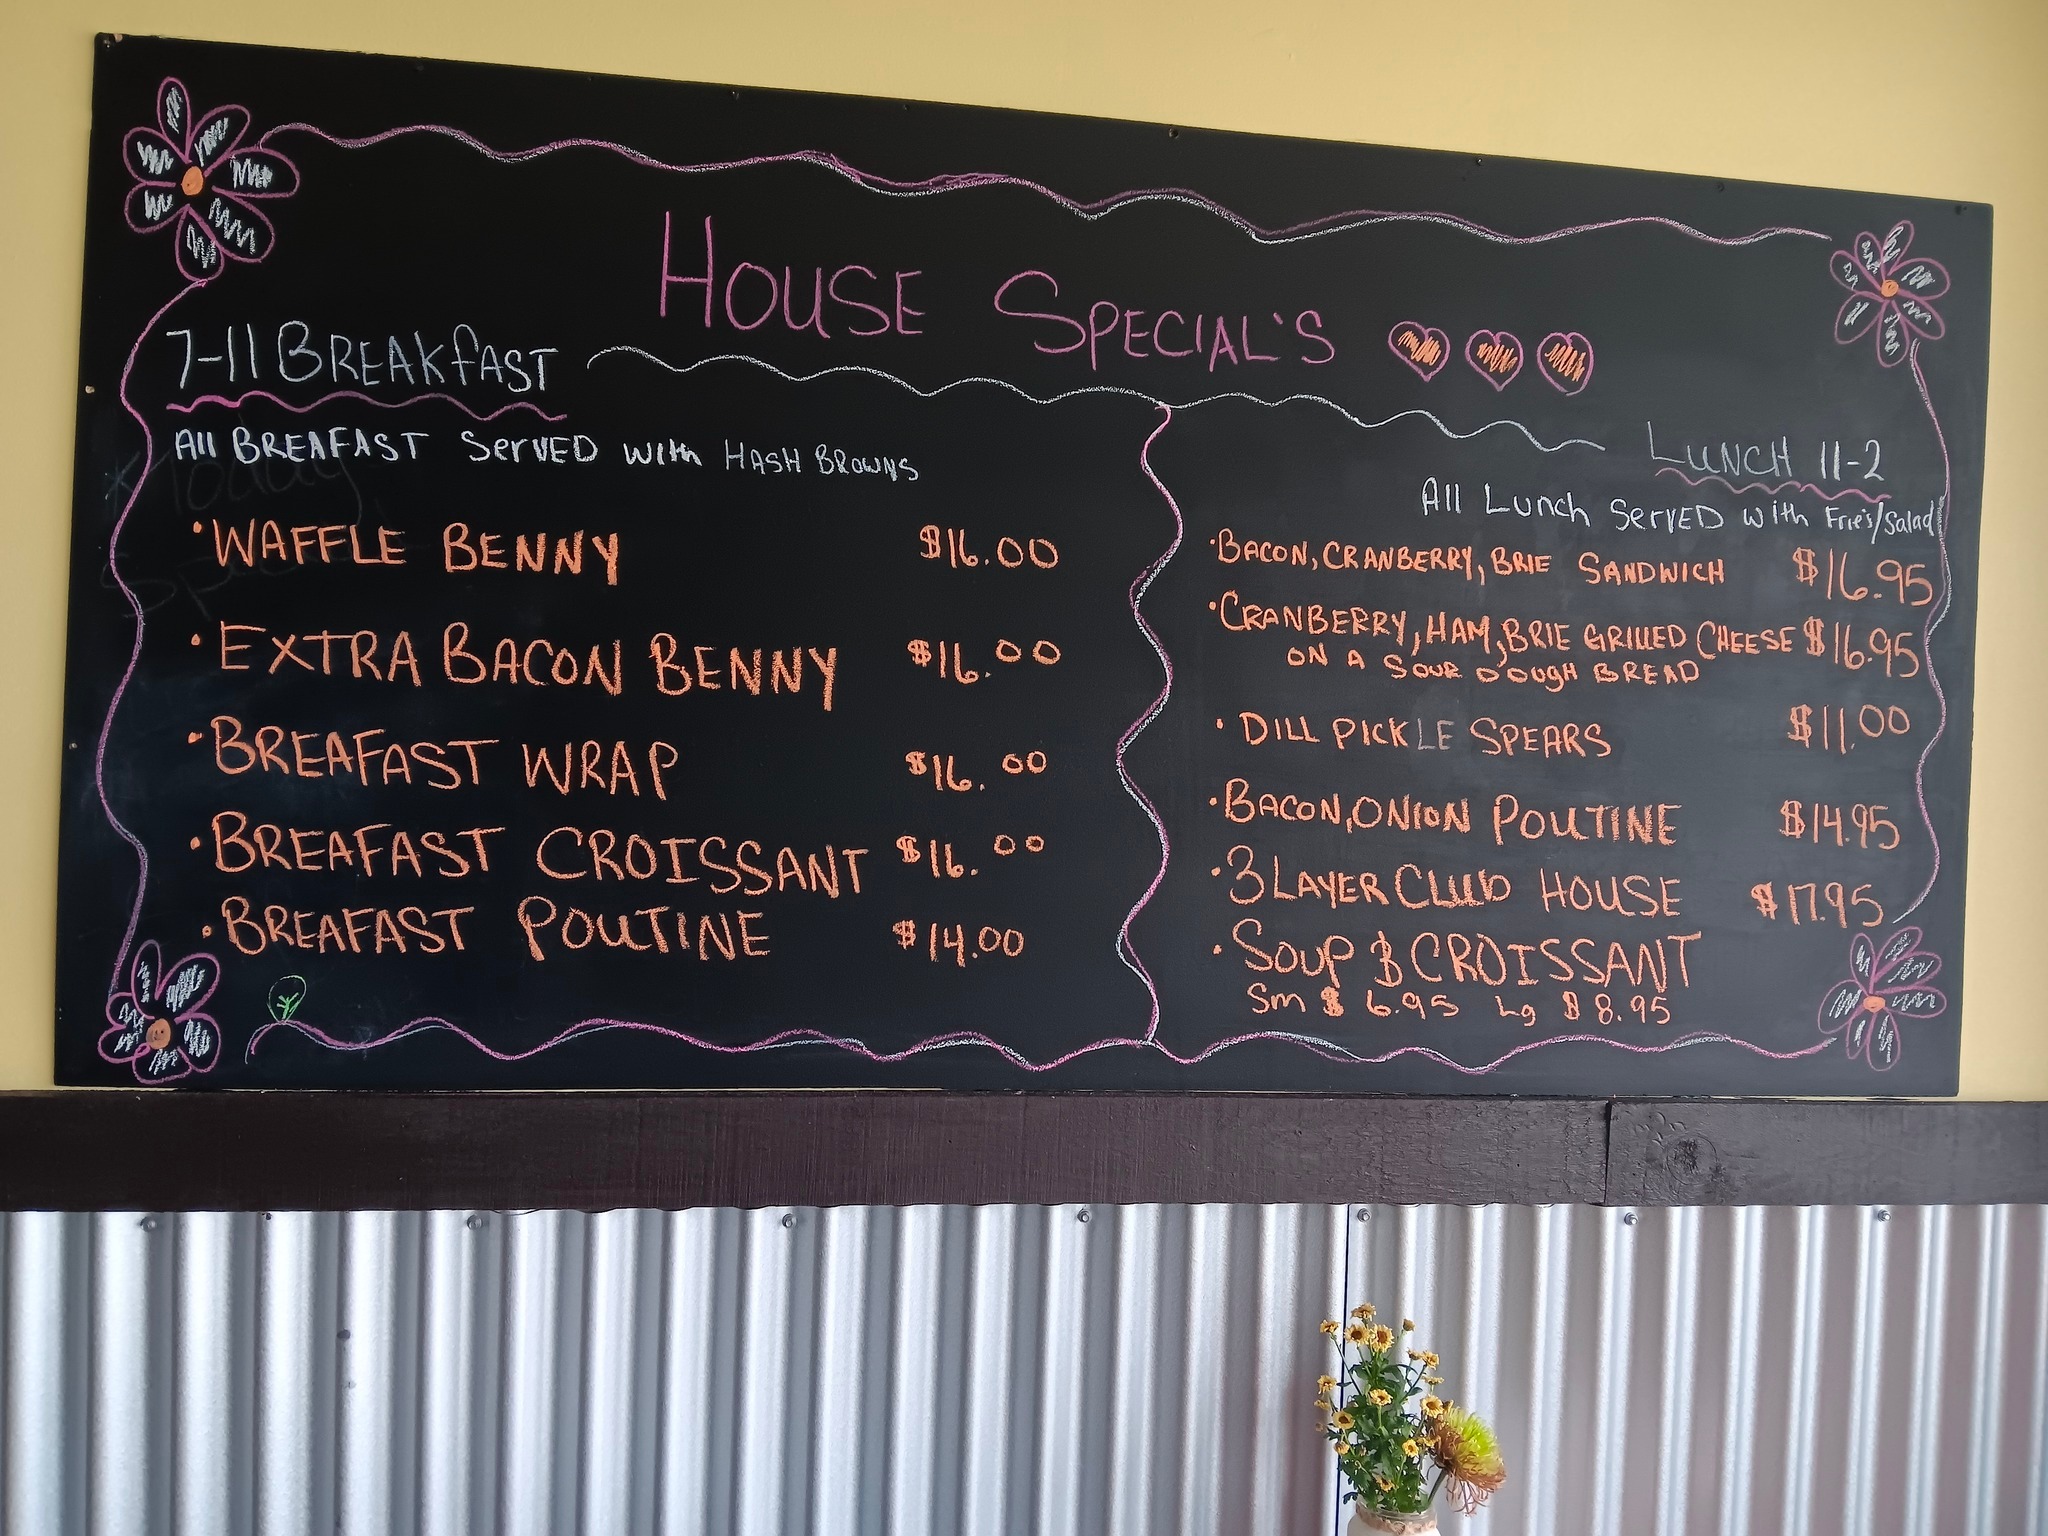 HOUSE SPECIAL'S
7-11 BREAKFAST
All BREAFAST SERVED with HASH BROWNS
• WAFFLE BENNY $16.00
• EXTRA BACON BENNY $16.00
• BREAFAST WRAP $16.00
• BREAFAST CROISSANT $16.00
• BREAFAST POUTINE $14.00
LUNCH 11-2
All Lunch SERVED with Frie's/Salad
• BACON, CRANBERRY, BRIE SANDWICH $16.95
• CRANBERRY, HAM, BRIE GRILLED CHEESE $16.95
ON A SOUR DOUGH BREAD
• DILL PICKLE SPEARS $11.00
• BACON, ONION POUTINE $14.95
• 3 LAYER CLUB HOUSE $17.95
• SOUP & CROISSANT
Sm $6.95 Lg $8.95